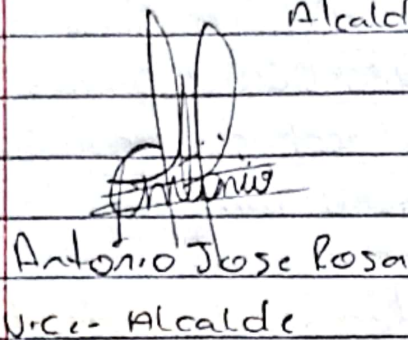 Alcald
Antonio Jose Rosa
Vice- Alcalde